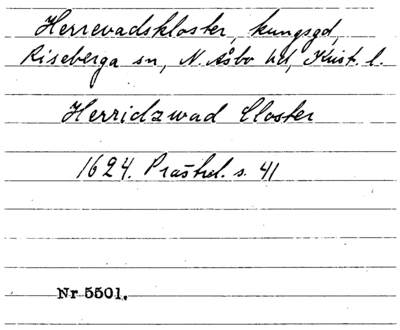 Herrevadskloster, kungsgd,
Riseberga sn, N. Åsbo hd, Krist. l.
Herridzwad Closter
1624. s. 41
Nr 5501.